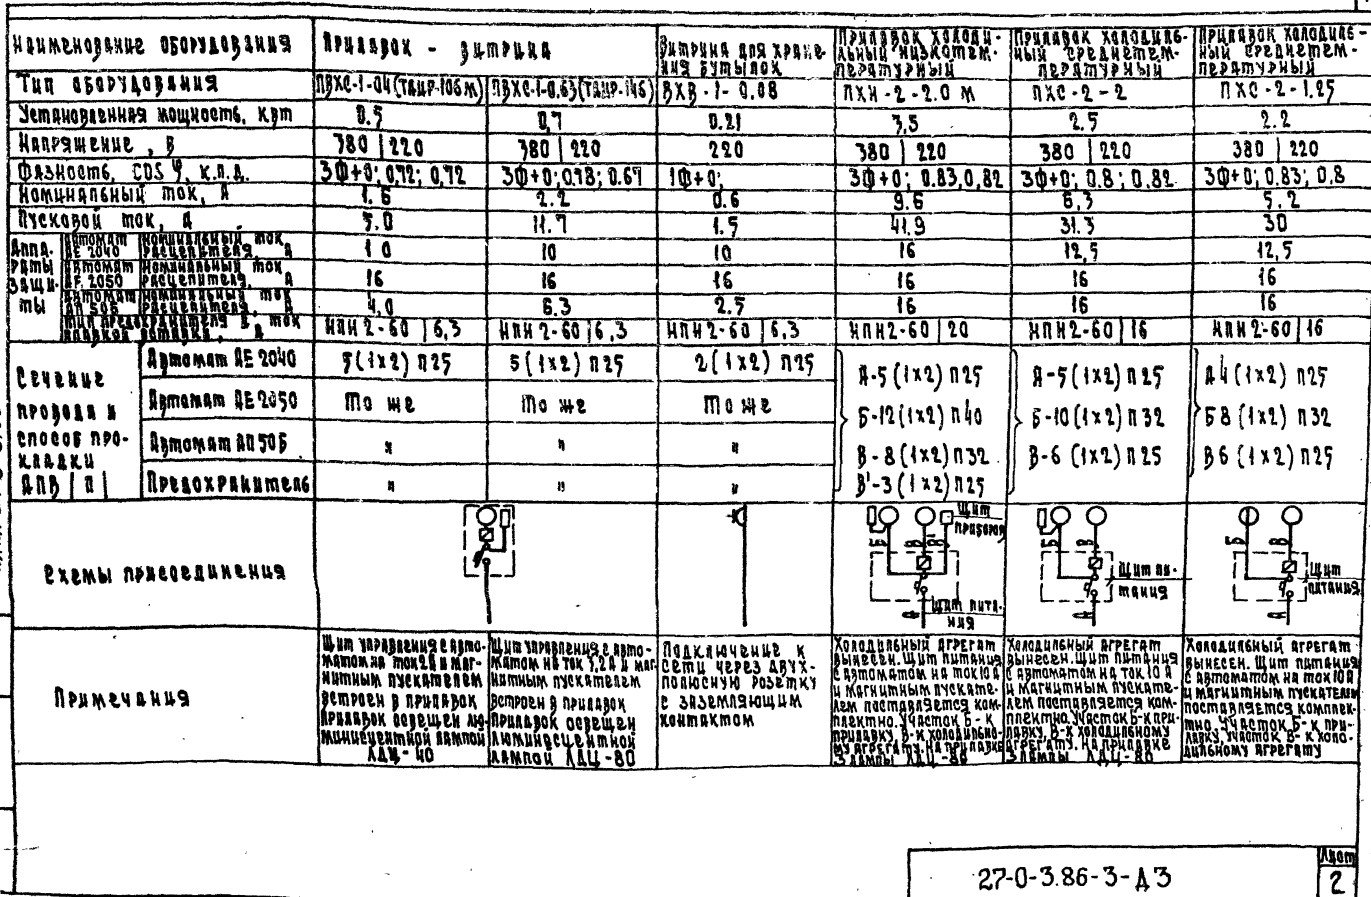 Наименование оборудования | Прилавок - витрина | Витрина для хране- | Прилавок холоди- | Прилавок холодиль- | Прилавок холодиль-
ния бутылок | льный низкотем- | ный среднетем- | ный среднетем-
пературный | пературный | пературный
Тип оборудования | ПВХС-1-04(ТАИР-106м) | ПВХС-1-0.63(ТАИР-146) | ВХВ-1-0.08 | ПХН-2-2.0 м | ПХС-2-2 | ПХС-2-1.25
Установленная мощность, квт | 0.5 | 0,7 | 0.21 | 3,5 | 2.5 | 2.2
Напряжение, В | 380 | 220 | 380 | 220 | 220 | 380 | 220 | 380 | 220 | 380 | 220
Фазность, COS φ, к.п.д. | 3Ф+0; 0,72; 0,72 | 3Ф+0; 0,78; 0.67 | 1Ф+0; | 3Ф+0; 0.83, 0,82 | 3Ф+0; 0.8; 0,82 | 3Ф+0; 0,83; 0,8
Номинальный ток, А | 1.6 | 2.2 | 0.6 | 9.6 | 6,3 | 5.2
Пусковой ток, А | 5.0 | 11.7 | 1.5 | 41.9 | 31.3 | 30
Аппа-
раты
защи-
ты
Автомат АЕ 2040 | номинальный ток расцепителя, А | 10 | 10 | 10 | 16 | 12,5 | 12,5
Автомат АЕ 2050 | номинальный ток расцепителя, А | 16 | 16 | 16 | 16 | 16 | 16
Автомат АП 50Б | номинальный ток расцепителя, А | 4,0 | 6.3 | 2.5 | 16 | 16 | 16
Тип предохранителя и ток плавкой вставки, А | НПН2-60 | 6,3 | НПН2-60 | 6,3 | НПН2-60 | 6,3 | НПН2-60 | 20 | НПН2-60 | 16 | НПН2-60 | 16
Сечение
провода и
способ про-
кладки
АПВ | П |
Автомат АЕ 2040 | 5(1х2) П25 | 5(1х2) П25 | 2(1х2) П25
Автомат АЕ 2050 | То же | То же | То же
Автомат АП 50Б | " | " | "
Предохранитель | " | " | "
А-5(1х2) П25
Б-12(1х2) П40
В-8(1х2) П32
В'-3(1х2) П25
А-5(1х2) П25
Б-10(1х2) П32
В-6 (1х2) П25
А4(1х2) П25
Б8 (1х2) П32
В6 (1х2) П25
Схемы присоединения
Щит
приборов
Б В В'
Щит пита-
ния
А
Б В
Щит пи-
тания
А
Б В
Щит
питания
А
Примечания
Щит управления с авто-
матом на ток 2А и маг-
нитным пускателем
встроен в прилавок
Прилавок освещен лю-
минисцентной лампой
ЛДЦ-40
Щит управления с авто-
матом на ток 3,2А и маг-
нитным пускателем
встроен в прилавок
Прилавок освещен
люминисцентной
лампой ЛДЦ-80
Подключение к
сети через двух-
полюсную розетку
с заземляющим
контактом
Холодильный агрегат
вынесен. Щит питания
с автоматом на ток 10А
и магнитным пускате-
лем поставляется ком-
плектно. Участок Б-к
прилавку, В-к холодильно-
му агрегату. На прилавке
3 лампы ЛДЦ-80
Холодильный агрегат
вынесен. Щит питания
с автоматом на ток 10 А
и магнитным пускате-
лем поставляется ком-
плектно. Участок Б-к при-
лавку, В-к холодильному
агрегату. На прилавке
3 лампы ЛДЦ-80
Холодильный агрегат
вынесен. Щит питания
с автоматом на ток 10А
и магнитным пускателем
поставляется комплек-
тно. Участок Б-к при-
лавку, участок В-к холо-
дильному агрегату
27-0-3.86-3-Д3
Лист
2